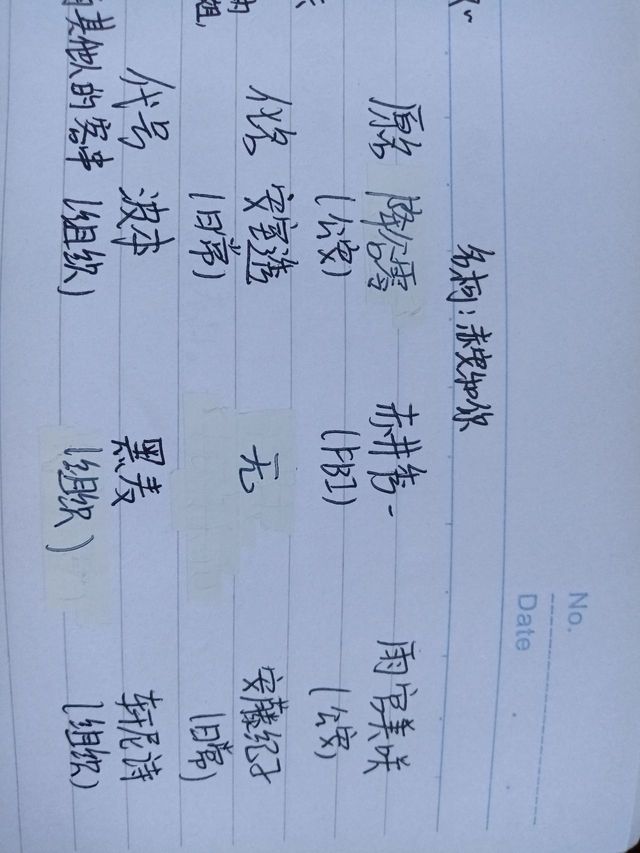 No.
Date
名柯：赤安和你
原名 降谷零 赤井秀一 雨宫美咲
(公安) (FBI) (公安)
化名 安室透 无 安藤纪子
(日常) (日常)
代号 波本 黑麦 轩尼诗
(组织) (组织) (组织)
姐,
其他人的客串